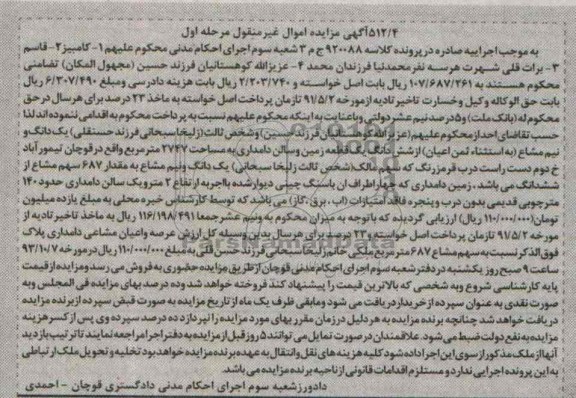 ۵۱۲/۴ آگهی مزایده اموال غیرمنقول مرحله اول
به موجب اجراییه صادره در پرونده کلاسه ۹۲۰۰۸۸ ج م ۳ شعبه سوم اجرای احکام مدنی محکوم علیهم ۱- کامبیز ۲- قاسم
۳- برات قلی شهرت هرسه نفر محمدنیا فرزندان محمد ۴- عزیزالله کوهستانیان فرزند حسین (مجهول المکان) تضامنی
محکوم هستند به ۱۰۷/۶۸۷/۲۶۱ ریال بابت اصل خواسته و ۲/۲۰۳/۷۴۰ ریال بابت هزینه دادرسی ومبلغ ۶/۳۰۷/۴۹۰ ریال
بابت حق الوکاله وکیل وخسارت تاخیر تادیه از مورخه ۹۱/۵/۲ تازمان پرداخت اصل خواسته به ماخذ ۲۳ درصد برای هرسال در حق
محکوم له (بانک ملت) و۵ درصد نیم عشر دولتی وباعنایت به اینکه محکوم علیهم نسبت به پرداخت محکوم به اقدامی ننموده اند لذا
حسب تقاضای احد از محکوم علیهم (عزیزالله کوهستانیان فرزند حسین) وشخص ثالث (زلیخا سبحانی فرزند حسنقلی) یک دانگ و
نیم مشاع (به استثناء ثمن اعیان) از شش دانگ یک قطعه زمین وسالن دامداری به مساحت ۲۷۴۷ متر مربع واقع در قوچان تیمور آباد
خ دوم دست راست درب قرمز رنگ که سهم مالک (شخص ثالث زلیخا سبحانی) یک دانگ ونیم مشاع به مقدار ۶۸۷ سهم مشاع از
ششدانگ می باشد. زمین دامداری که چهار اطراف ان باسنگ چینی دیوار شده باآجر به ارتفاع ۲ متر ویک سالن دامداری حدود ۱۴۰
متر چوبی قدیمی بدون درب و پنجره فاقد امتیازات (اب. برق. گاز) می باشد که توسط کارشناس خبره محلی به مبلغ یازده میلیون
تومان (۱۱۰/۰۰۰/۰۰۰ ریال) ارزیابی گردیده که باتوجه به میزان محکوم به ونیم عشر جمعا ۱۱۶/۱۹۸/۴۹۱ ریال به ماخذ تاخیر تادیه از
مورخه ۹۱/۵/۲ تازمان پرداخت اصل خواسته و۲۳ درصد برای هرسال بدین وسیله کل ارزش عرصه واعیان مشاعی دامداری پلاک
فوق الذکر نسبت به سهم مشاع ۶۸۷ متر مربع ملکی خانم زلیخا سبحانی فرزند حسن قلی به مبلغ ۱۱۰/۰۰۰/۰۰۰ ریال در مورخه ۹۳/۱۰/۷
ساعت ۹ صبح روز یکشنبه در دفتر شعبه سوم اجرای احکام مدنی قوچان از طریق مزایده حضوری به فروش می رسد ومزایده از قیمت
پایه کارشناسی شروع وبه شخصی که بالاترین قیمت را پیشنهاد کند فروخته خواهد شد وده درصد بهای مزایده فی المجلس وبه
صورت نقدی به عنوان سپرده از خریدار دریافت می شود ومابقی ظرف یک ماه از تاریخ مزایده به صورت قبض سپرده از برنده مزایده
دریافت خواهد شد چنانچه برنده مزایده به هر دلیل در زمان مقرر بهای مورد مزایده را نپردازد ده درصد سپرده وی پس از کسر هزینه
مزایده به نفع دولت ضبط می شود. علاقمندان در صورت تمایل می توانند ۵ روز قبل از مزایده به دفتر اجرا مراجعه نمایند تا ترتیب بازدید
آنها از ملک مذکور از سوی این اجرا داده شود کلیه هزینه های نقل وانتقال به عهده برنده مزایده خواهد بود تخلیه و تحویل ملک ارتباطی
به این پرونده اجرایی ندارد و مستلزم اقدامات قانونی از ناحیه برنده مزایده می باشد.
دادورز شعبه سوم اجرای احکام مدنی دادگستری قوچان - احمدی
ParsNamadData